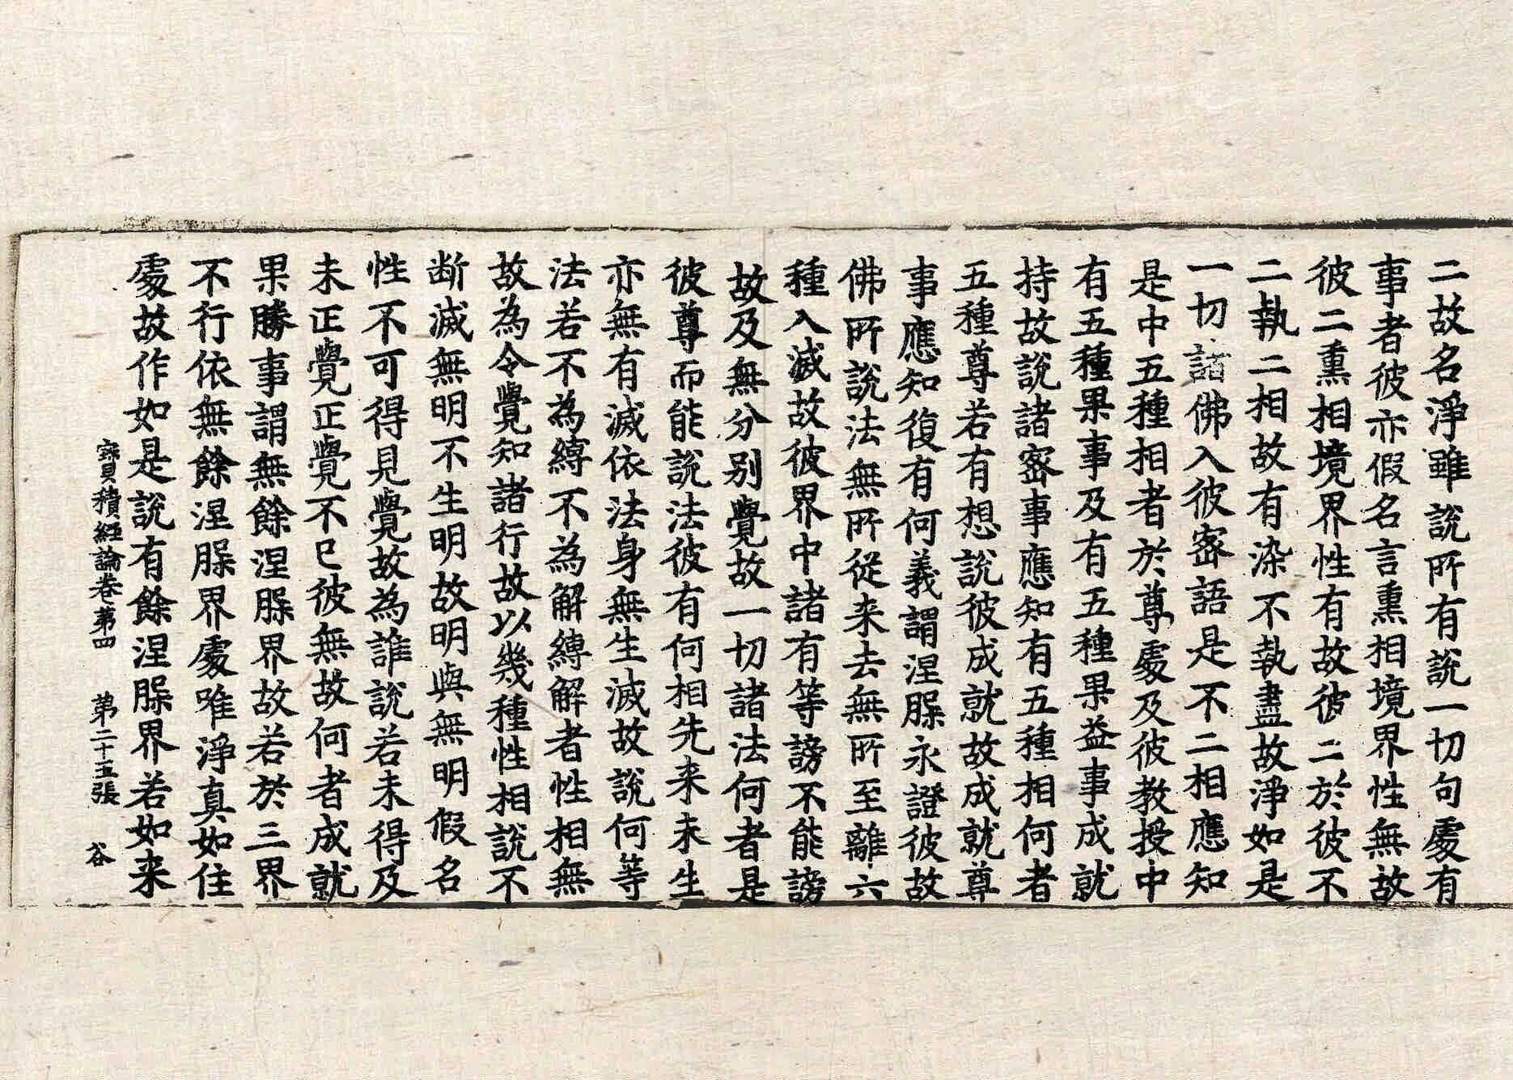 二故名淨雖說所有說一切句處有
事者彼亦假名言熏相境界性無故
彼二熏相境界性有故彼二於彼不
二執二相故有染不執盡故淨如是
一切諸佛入彼密語是不二相應知
是中五種相者於尊處及彼教授中
有五種果事及有五種果益事成就
持故說諸密事應知有五種相何者
五種尊若有想說彼成就故成就尊
事應知復有何義謂涅槃永證彼故
佛所說法無所從来去無所至離六
種入滅故彼界中諸有等謗不能謗
故及無分别覺故一切諸法何者是
彼尊而能說法彼有何相先来未生
亦無有滅依法身無生滅故說何等
法若不為縛不為解縛解者性相無
故為令覺知諸行故以幾種性相說不
断滅無明不生明故明與無明假名
性不可得見覺故為誰說若未得及
未正覺正覺不已彼無故何者成就
果勝事謂無餘涅槃界故若於三界
不行依無餘涅槃界處唯淨真如住
處故作如是說有餘涅槃界若如来
寳積經論卷第四 第二十五張 谷